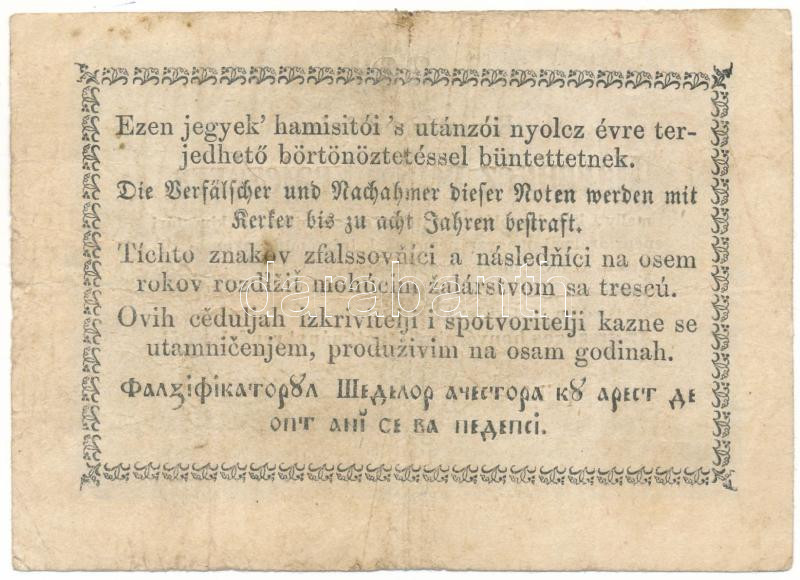 Ezen jegyek' hamisitói 's utánzói nyolcz évre ter-
jedhető börtönöztetéssel büntettetnek.
Die Verfälscher und Nachahmer dieser Noten werden mit
Kerker bis zu acht Jahren bestraft.
Tíchto znakov zfalssovňíci a následňíci na osem
rokov rozdĺžiť mohúcim žalárstvom sa trescú.
darabanth
Ovih cěduljah izkrivitelji i spotvoritelji kazne se
utamničenjem, produživim na osam godinah.
Фалꙃіфікаторꙋл Шеделор ачестора кꙋ арест де
опт анĭ се ва педепсі.